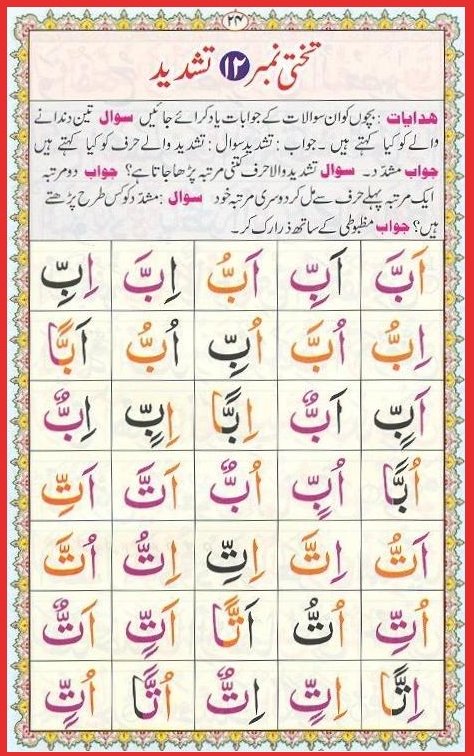 ۲۴
تختی نمبر ۱۲ تشدید
ھدایات : بچوں کو ان سوالات کے جوابات یاد کرائے جائیں سوال تین دندانے
والے کو کیا کہتے ہیں ۔ جواب : تشدید سوال : تشدید والے حرف کو کیا کہتے ہیں
جواب مشدّد ۔ سوال تشدید والا حرف کتنی مرتبہ پڑھا جاتا ہے؟ جواب دو مرتبہ
ایک مرتبہ پہلے حرف سے مل کر دوسری مرتبہ خود سوال : مشدّد کو کس طرح پڑھتے
ہیں؟ جواب مظبوطی کے ساتھ ذرا رک کر ۔
اَبَّ اَبِّ اَبُّ اِبَّ اِبِّ
اِبُّ اُبَّ اُبِّ اُبُّ اَبًّا
اَبٍّ اَبٌّ اِبًّا اِبٍّ اِبٌّ
اُبًّا اُبٍّ اُبٌّ اَتَّ اَتِّ
اَتُّ اِتَّ اِتِّ اِتُّ اُتَّ
اُتِّ اُتُّ اَتًّا اَتٍّ اَتٌّ
اِتًّا اِتٍّ اِتٌّ اُتًّا اُتٍّ